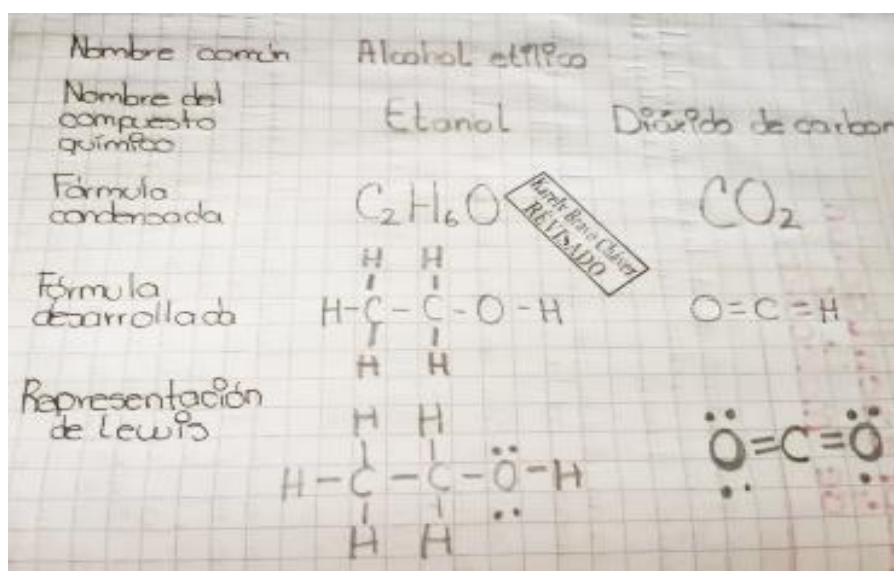 Nombre común Alcohol etílico
Nombre del
compuesto
químico
Etanol Dióxido de carbon
Fórmula
condensada
C₂H₆O CO₂
Karely Bravo Chávez
REVISADO
H H
Fórmula
desarrollada
H-C-C-O-H O=C=H
H H
Representación
de Lewis
H H
H-C-C-O-H O=C=O
H H